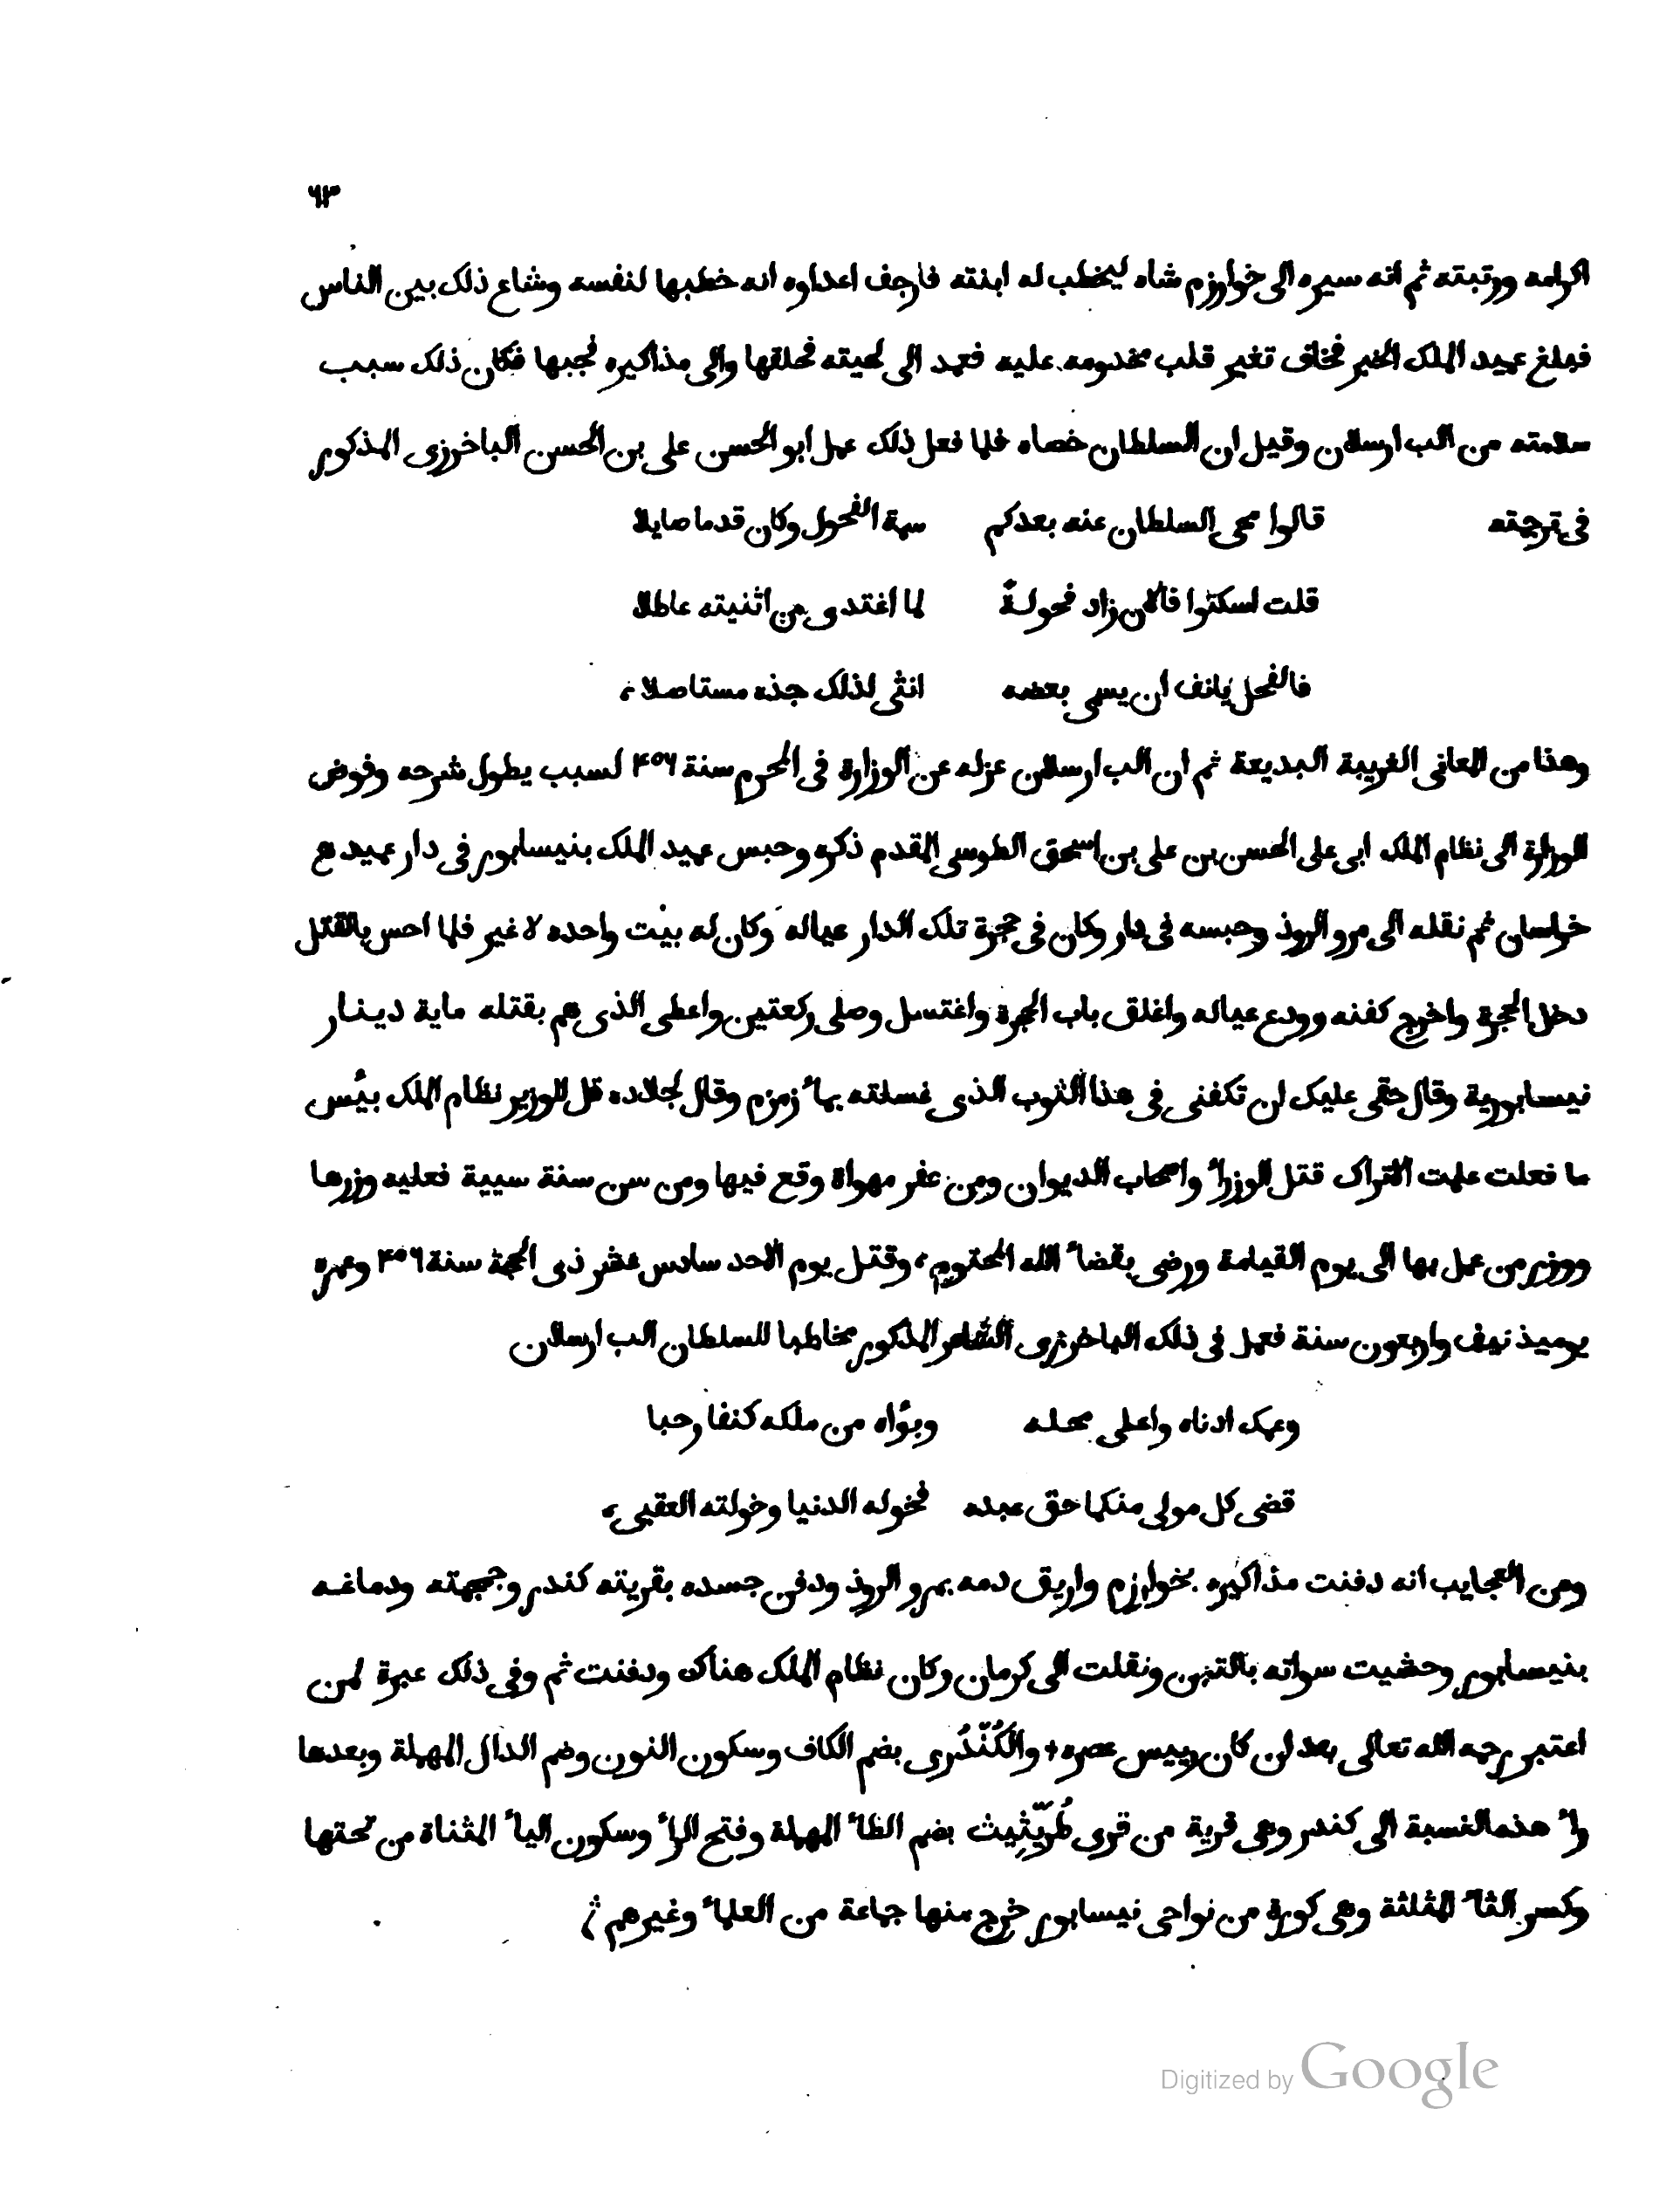 ٦٣
اكرامه ورتبته ثم انه سيره الى خوارزم شاه ليخطب له ابنته فارجف اعداوه انه خطبها لنفسه وشاع ذلك بين الناس
فبلغ عميد الملك الخبر فخاف تغير قلب مخدومه عليه فعمد الى لحيته فحلقها والى مذاكيره فجبها فكان ذلك سبب
سلامته من الب ارسلان وقيل ان السلطان خصاه فلما فعل ذلك عمل ابو الحسن على بن الحسن الباخرزى المذكور
فى ترجمته قالوا محى السلطان عنه بعدكم سمة الفحول وكان قدما صايلا
قلت اسكتوا فالان زاد فحولةً لما اغتدى من اثنيته عاطلا
فالفحل يانف ان يسمى بعضه انثى لذلك جذه مستاصلا،
وهذا من المعانى الغريبة البديعة ثم ان الب ارسلان عزله عن الوزارة فى المحرم سنة ۴۵۶ لسبب يطول شرحه وفوض
الوزارة الى نظام الملك ابى على الحسن بن على بن اسحق الطوسى المقدم ذكره وحبس عميد الملك بنيسابور فى دار عميد
خراسان ثم نقله الى مرو الروذ وحبسه فى دار وكان فى حجرة تلك الدار عياله وكان له بنت واحده لا غير فلما احس بالقتل
دخل الحجرة واخرج كفنه وودع عياله واغلق باب الحجرة واغتسل وصلى ركعتين واعطى الذى هم بقتله ماية دينار
نيسابورية وقال حقى عليك ان تكفنى فى هذا الثوب الذى غسلته بماء زمزم وقال لجلاده قل للوزير نظام الملك بئس
ما فعلت علمت الاتراك قتل الوزراء واصحاب الديوان ومن حفر مهواة وقع فيها ومن سن سنة سيية فعليه وزرها
ووزر من عمل بها الى يوم القيامة ورضى بقضاء الله المحتوم، وقتل يوم الاحد سادس عشر ذى الحجة سنة ۴۵۶ وعمره
يوميذ نيف واربعون سنة فعمل فى ذلك الباخرزى الشاعر المذكور مخاطبا للسلطان الب ارسلان
وعمك ادناه واعلى محله وبوّاه من ملكه كنفا رحبا
قضى كل مولى منكما حق عبده فخوله الدنيا وخولته العقبى،
ومن العجايب انه دفنت مذاكيره بخوارزم واريق دمه بمرو الروذ ودفن جسده بقريته كندر وجمجمته ودماغه
بنيسابور وحشيت سواته بالتبن ونقلت الى كرمان وكان نظام الملك هناك ودفنت ثم وفى ذلك عبرة لمن
اعتبر رحمه الله تعالى بعد ان كان رييس عصره + والكُنْدُرى بضم الكاف وسكون النون وضم الدال المهملة وبعدها
راء هذه النسبة الى كندر وهى قرية من قرى طُرَيْثِيث بضم الطاء المهملة وفتح الراء وسكون الياء المثناة من تحتها
وكسر الثاء المثلثة وهى كورة من نواحى نيسابور خرج منها جماعة من العلماء وغيرهم
Digitized by Google